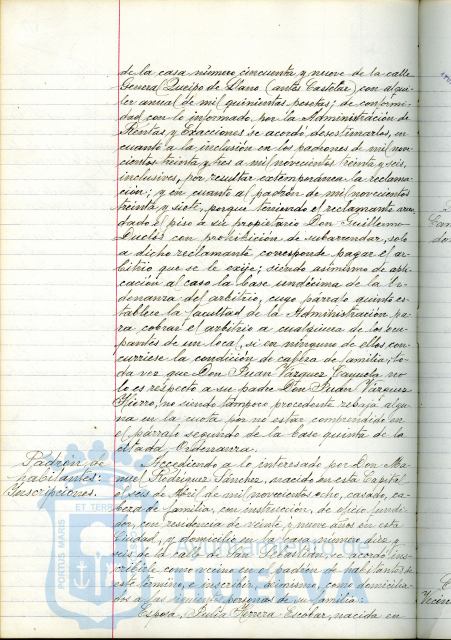 de la casa número cincuenta y nueve de la calle
General Queipo de Llano (antes Castelar) con alqui-
ler anual de mil quinientas pesetas; de conformi-
dad con lo informado por la Administración de
Rentas y Exacciones se acordó desestimarlas, en
cuanto a la inclusión en los padrones de mil nove-
cientos treinta y tres a mil novecientos treinta y seis,
inclusives, por resultar extemporánea la reclama-
ción; y en cuanto al padrón de mil novecientos
treinta y siete, porque teniendo el reclamante arren-
dado el piso a su propietario Don Guillermo
Duclós con prohibición de subarrendar, solo
a dicho reclamante corresponde pagar el ar-
bitrio que se le exije; siendo asimismo de apli-
cación al caso la base undécima de la Or-
denanza del arbitrio, cuyo párrafo quinto es-
tablece la facultad de la Administración pa-
ra cobrar el arbitrio a cualquiera de los ocu-
pantes de un local, si en ninguno de ellos con-
curriese la condición de cabeza de familia; to-
da vez que Don Juan Vázquez no
lo es respecto a su padre Don Juan Vázquez
Hierro, no siendo tampoco procedente rebaja algu-
na en la cuota por no estar comprendido en
el párrafo segundo de la base quinta de la
citada Ordenanza.
Padrón de
habitantes:
Inscripciones.
Accediendo a lo interesado por Don Ma-
nuel Rodríguez Sánchez, nacido en esta Capital
el seis de Abril de mil novecientos ocho, casado, ca-
beza de familia, con instrucción, de oficio fundi-
dor, con residencia de veinte y nueve años en esta
Ciudad, y domicilio en la casa número diez y
seis de la calle de San Sebastián, se acordó ins-
cribirle como vecino en el padrón de habitantes de
este término, e inscribir, asimismo, como domicilia-
dos a las siguientes personas de su familia:
Esposa, Julia Herrera Escobar, nacida en
PORTUS MARIS
ET TERRAE